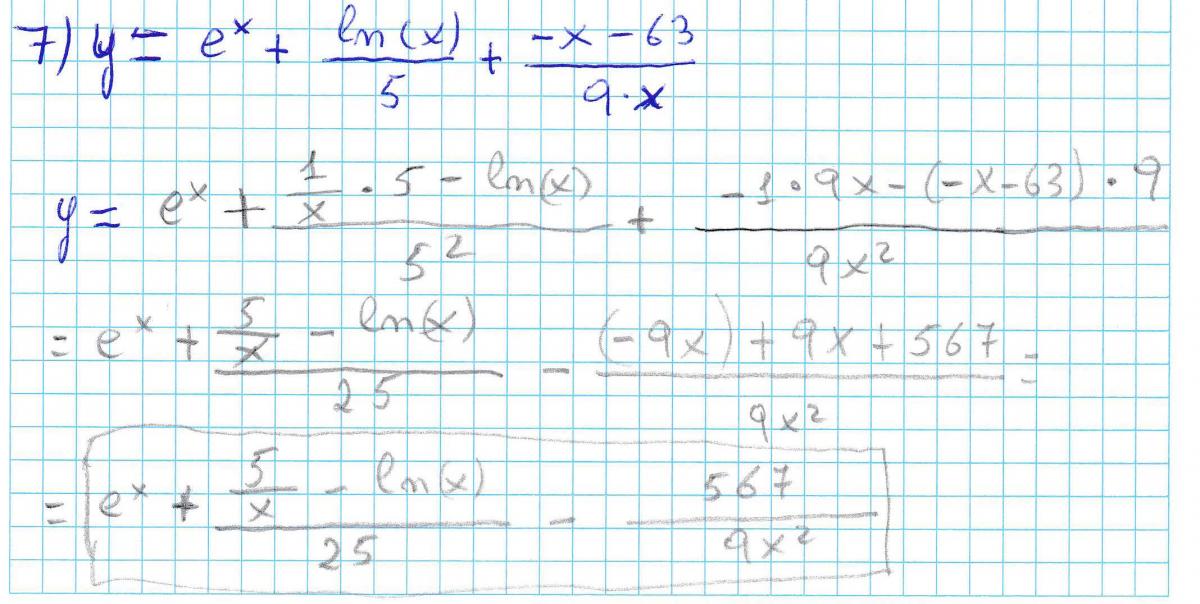 7) y = e^x + ln(x)/5 + (-x - 63)/(9·x)
y = e^x + (1/x · 5 - ln(x))/5^2 + (-1·9x - (-x-63)·9)/(9x^2)
= e^x + (5/x - ln(x))/25 - ((-9x) + 9x + 567)/(9x^2) =
= e^x + (5/x - ln(x))/25 - 567/(9x^2)